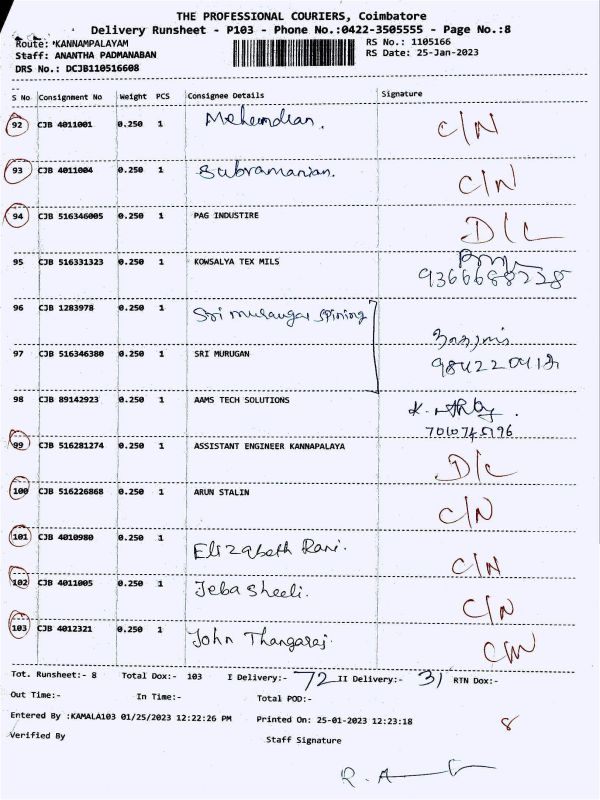 THE PROFESSIONAL COURIERS, Coimbatore
Delivery Runsheet - P103 - Phone No.:0422-3505555 - Page No.:8
Route: KANNAMPALAYAM RS No.: 1105166
Staff: ANANTHA PADMANABAN RS Date: 25-Jan-2023
DRS No.: DCJB110516608
S No Consignment No Weight PCS Consignee Details Signature
92 CJB 4011001 0.250 1 C/N
93 CJB 4011004 0.250 1 Subramanian. C/N
94 CJB 516346005 0.250 1 PAG INDUSTIRE D/L
95 CJB 516331323 0.250 1 KOWSALYA TEX MILS
9366688228
96 CJB 1283978 0.250 1 Sri murugar spining
97 CJB 516346380 0.250 1 SRI MURUGAN
98 CJB 89142923 0.250 1 AAMS TECH SOLUTIONS K.
7010745196
99 CJB 516281274 0.250 1 ASSISTANT ENGINEER KANNAPALAYA D/L
100 CJB 516226868 0.250 1 ARUN STALIN C/N
101 CJB 4010980 0.250 1 Elizabeth Rani. C/N
102 CJB 4011005 0.250 1 Jeba Sheeli. C/N
103 CJB 4012321 0.250 1 John Thangaraj. C/N
Tot. Runsheet:- 8 Total Dox:- 103 I Delivery:- 72 II Delivery:- 31 RTN Dox:-
Out Time:- In Time:- Total POD:-
Entered By :KAMALA103 01/25/2023 12:22:26 PM Printed On: 25-01-2023 12:23:18 8
Verified By Staff Signature
R. A